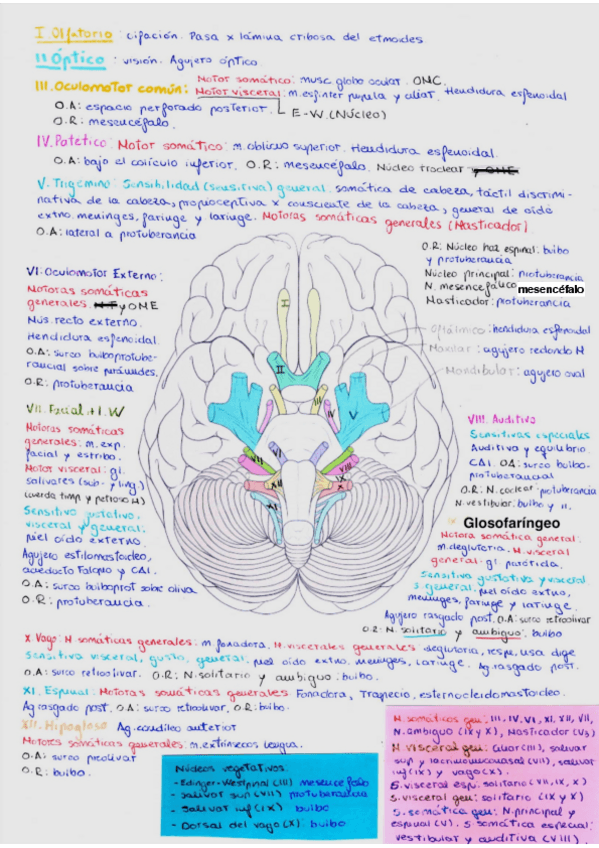 I. Olfatorio: cipación. Pasa x lámina cribosa del etmoides
II Óptico: visión. Agujero óptico
III. Oculomotor común: Motor somático: musc globo ocular. OMC.
Motor visceral: m. esfínter pupila y ciliar. Hendidura esfenoidal
O.A: espacio perforado posterior. E-W. (Núcleo)
O.R: mesencéfalo.
IV. Patético: Motor somático: m. oblicuo superior. Hendidura esfenoidal.
O.A: bajo el colículo inferior. O.R: mesencéfalo. Núcleo troclear
V. Trigémino: Sensibilidad (sensitiva) general. somática de cabeza, táctil discrimi-
nativa de la cabeza, propioceptiva x consciente de la cabeza, general de oído
extno. meninges, faringe y laringe. Motoras somáticas generales (Masticador).
O.A: lateral a protuberancia
O.R: Núcleo haz espinal: bulbo
y protuberancia
Núcleo principal: protuberancia
N. mesencefálico mesencéfalo
Masticador: protuberancia
Oftálmico: hendidura esfenoidal
Maxilar: agujero redondo M
Mandibular: agujero oval
VI. Oculomotor Externo:
Motoras somáticas
generales. y OME
Mús. recto externo.
Hendidura esfenoidal.
O.A: surco bulboprotube-
rancial sobre pirámides.
O.R: protuberancia
VII. Facial + I. W
Motoras somáticas
generales: m. exp.
facial y estribo.
Motor visceral: gl.
salivares (sub- y ling.)
(cuerda timp y petroso M)
Sensitivo gustativo.
visceral y general:
piel oído externo.
Agujero estilomastoideo,
acueducto Falopio y CAI.
O.A: surco bulboprot sobre oliva
O.R: protuberancia.
I
II
III
IV
V
VI
VII
VIII
IX
X
XII
XI
VIII. Auditivo
Sensitivas especiales
Auditiva y equilibrio
CAI. OA: surco bulbo-
protuberancial
O.R: N. coclear: protuberancia
N. vestibular: bulbo y 11.
Glosofaríngeo
Motora somática general:
m. deglutoria. M. visceral
general: gl. parótida.
Sensitiva gustativa y visceral
S. general. piel oído extno,
meninges, faringe y laringe.
Agujero rasgado post. O.A: surco retroolivar
O.R: N. solitario y ambiguo: bulbo
X Vago: M. somáticas generales: m. fonadora, M. viscerales generales deglutoria, resp., usa dige
Sensitiva visceral, gusto, general, piel oído extno. meninges, laringe. Ag. rasgado post.
O.A: surco retroolivar. O.R: N. solitario y ambiguo: bulbo.
XI. Espinal: Motoras somáticas generales Fonadora, Trapecio, esternocleidomastoideo.
Ag. rasgado post. O.A: surco retroolivar, O.R: bulbo.
XII. Hipogloso Ag. condíleo anterior
Motores somáticas generales: m. extrínsecos lengua.
O.A: surco preolivar
O.R: bulbo.
Núcleos vegetativos:
- Edinger-Westphal (III) mesencéfalo
- Salivar sup (VII) protuberancia
- Salivar inf (IX) bulbo
- Dorsal del vago (X): bulbo
M. somáticas gen: III, IV, VI, XI, XII, VII,
N. ambiguo (IX y X), Masticador (V3)
M visceral gen: ciliar (III), salivar
sup y lacrimomuconasal (VII), salivar
inf (IX) y vago (X).
S. visceral esp. solitario (VII, IX, X)
S. visceral gen: solitario (IX y X)
S. somática gen: N. principal y
espinal (V). S. somática especial:
vestibular y auditiva (VIII).